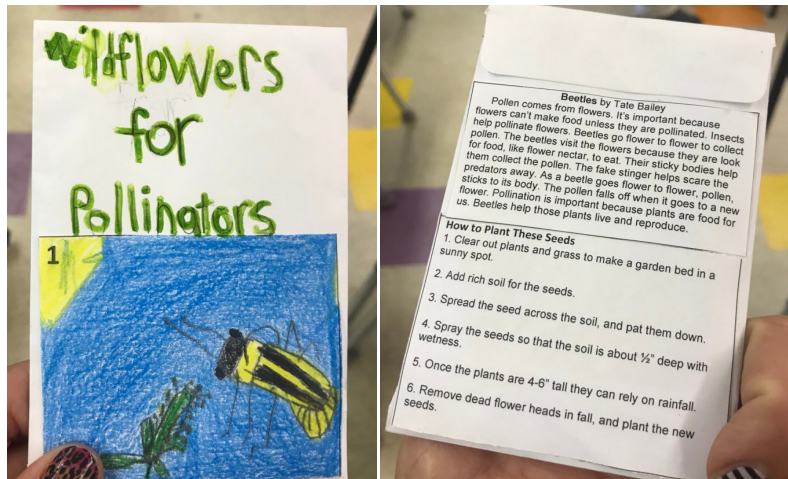 Wildflowers
for
Pollinators
1
Beetles by Tate Bailey
Pollen comes from flowers. It's important because
flowers can't make food unless they are pollinated. Insects
help pollinate flowers. Beetles go flower to flower to collect
pollen. The beetles visit the flowers because they are look
for food, like flower nectar, to eat. Their sticky bodies help
them collect the pollen. The fake stinger helps scare the
predators away. As a beetle goes flower to flower, pollen,
sticks to its body. The pollen falls off when it goes to a new
flower. Pollination is important because plants are food for
us. Beetles help those plants live and reproduce.
How to Plant These Seeds
1. Clear out plants and grass to make a garden bed in a
sunny spot.
2. Add rich soil for the seeds.
3. Spread the seed across the soil, and pat them down.
4. Spray the seeds so that the soil is about ½" deep with
wetness.
5. Once the plants are 4-6" tall they can rely on rainfall.
6. Remove dead flower heads in fall, and plant the new
seeds.